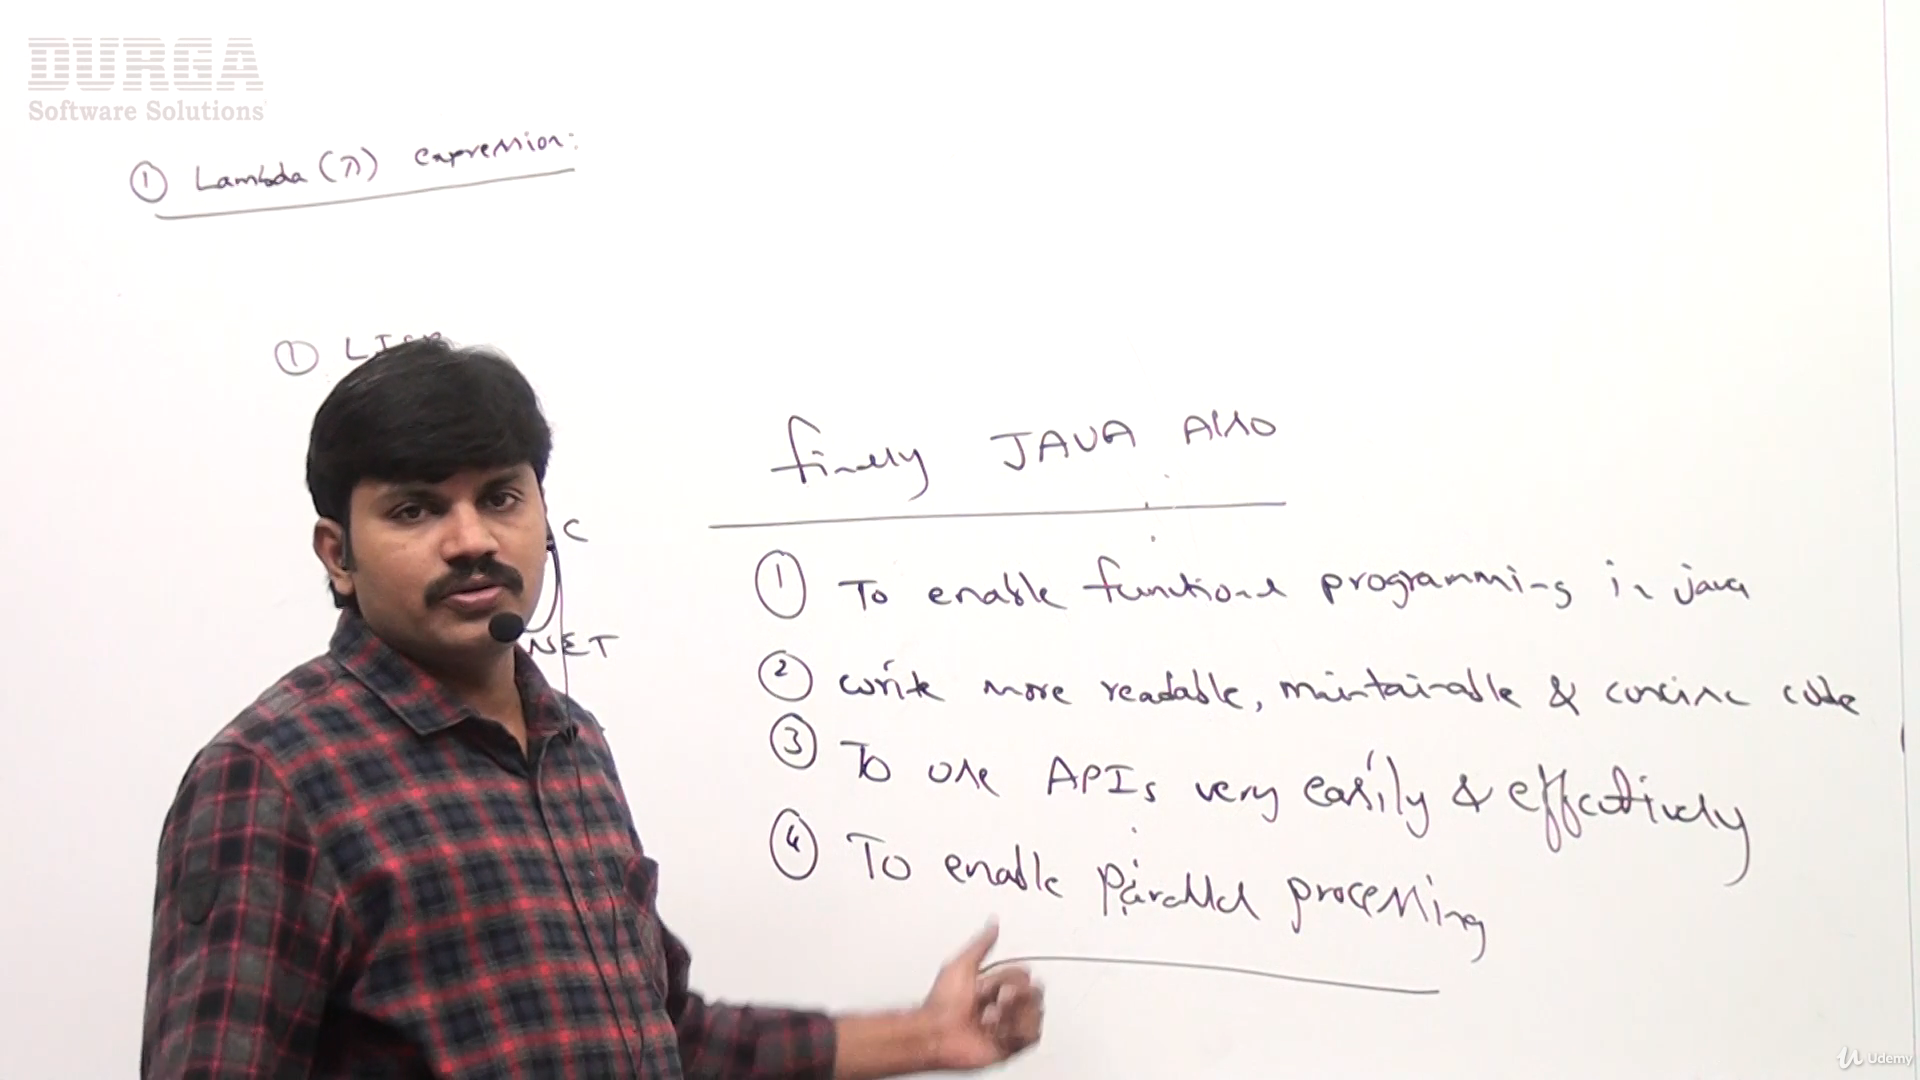 DURGA
Software Solutions
① Lambda (λ) expression:
① LISP
C
NET
finally JAVA Also
① To enable functional programming in java
② write more readable, maintainable & concise code
③ To use APIs very easily & effectively
④ To enable parallel processing
Udemy